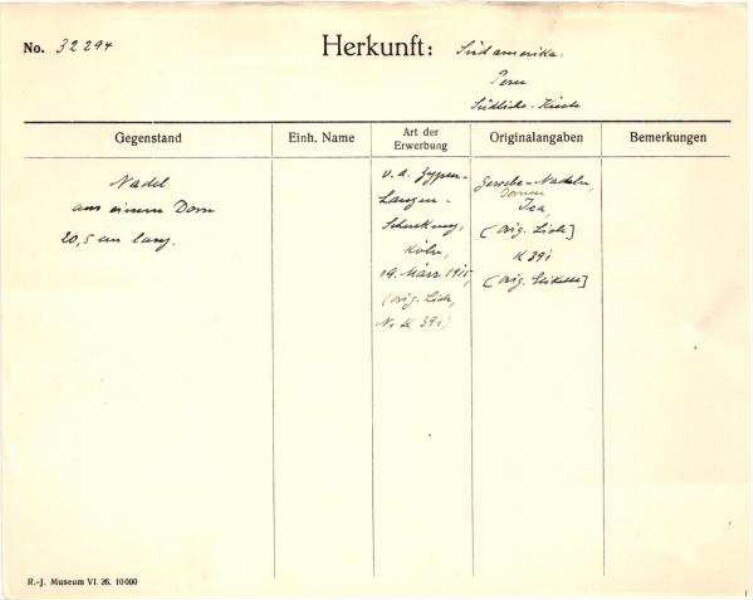 No. 32294
Herkunft: Südamerika.
Peru
Südliche Küste
Gegenstand
Einh. Name
Art der Erwerbung
Originalangaben
Bemerkungen
Nadel
aus einem Dorn
20,5 cm lang.
v. d. Zypen-
Langen-
Schenkung,
Köln,
März
(orig. Liste,
No K 39i)
Gewebe-Nadeln,
Dornen
Ica,
(orig. Liste]
K 39i
(orig. Etikett]
R.-J. Museum VI. 26. 10000